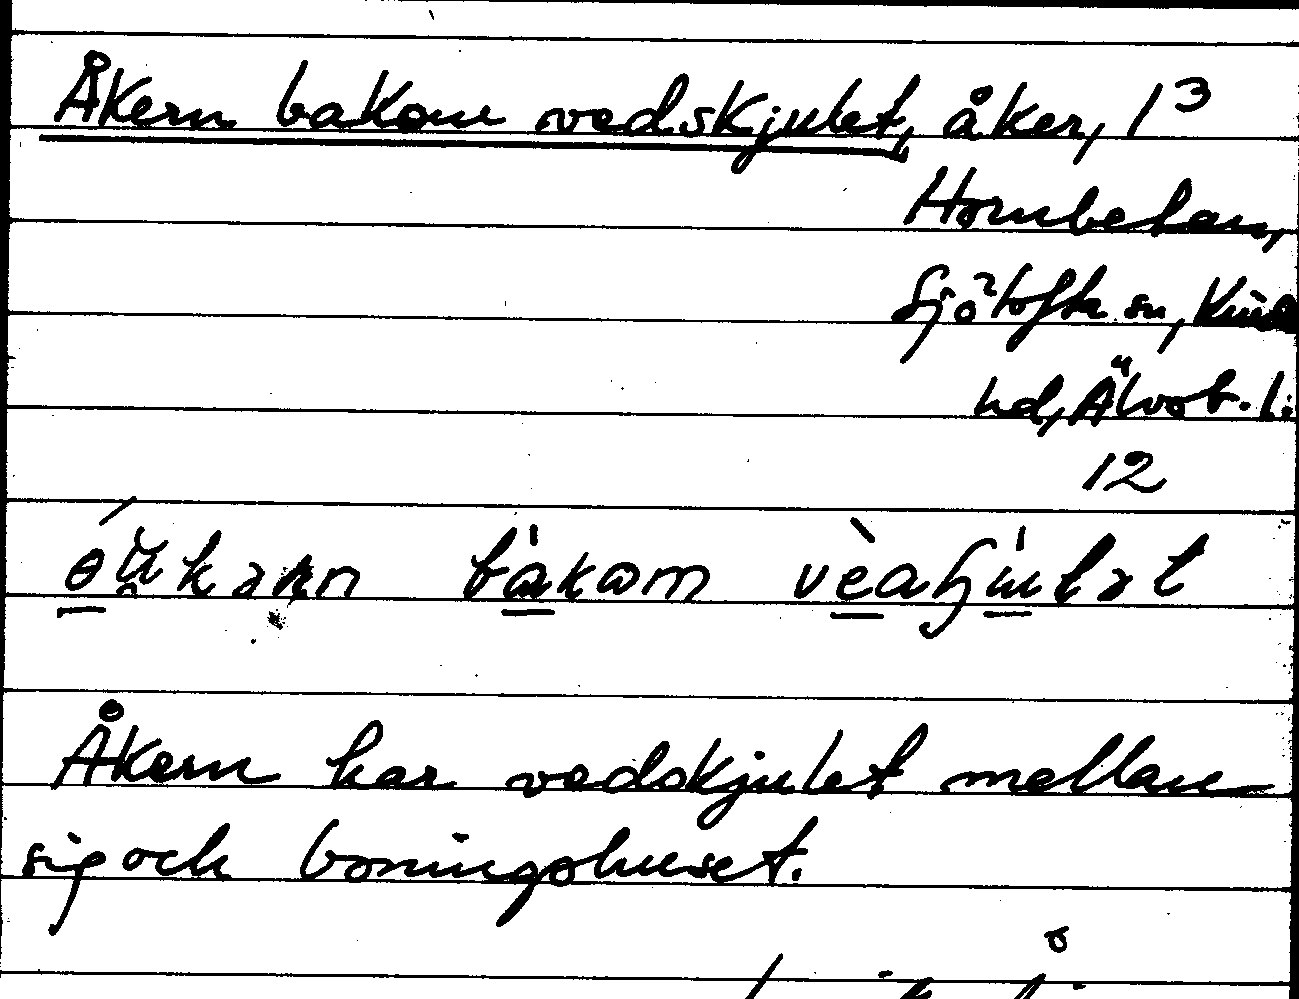 Åkern bakom vedskjulet, åker, 1³
Hornbehan,
Sjötofta sn, Kinds
hd, Älvsb. l.
12
bakom
Åkern har vedskjulet mellan
sig och boningshuset.